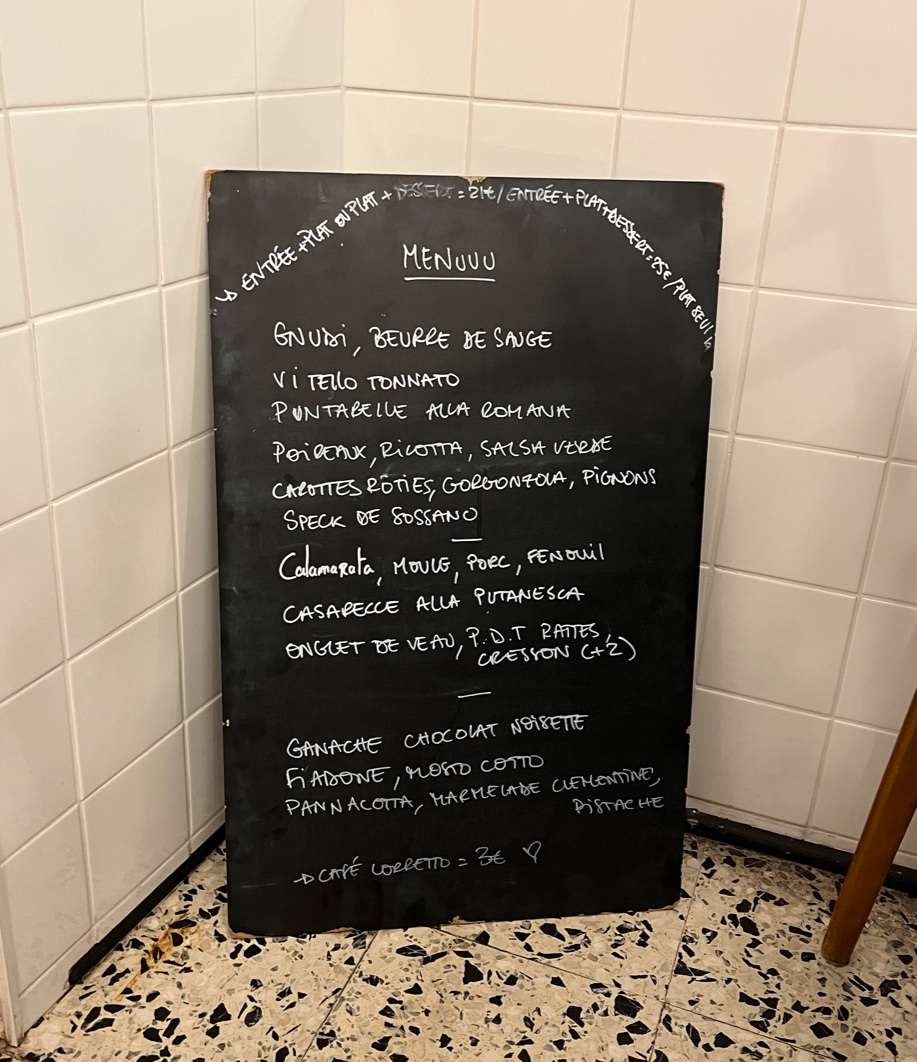 ↳ ENTRÉE + PLAT OU PLAT + DESSERT = 21€ / ENTRÉE + PLAT + DESSERT = 25€ / PLAT SEUL
MENUUU
GNUDI, BEURRE DE SAUGE
VITELLO TONNATO
PUNTARELLE ALLA ROMANA
POIREAUX, RICOTTA, SALSA VERDE
CAROTTES RÔTIES, GORGONZOLA, PIGNONS
SPECK DE SOSSANO
Calamarata, MOULE, PORC, FENOUIL
CASARECCE ALLA PUTANESCA
ONGLET DE VEAU, P.D.T RATTES,
CRESSON (+2)
GANACHE CHOCOLAT NOISETTE
FIADONE, MOSTO COTTO
PANNACOTTA, MARMELADE CLEMENTINE,
PISTACHE
→ CAFÉ CORRETTO = 3€ ♡